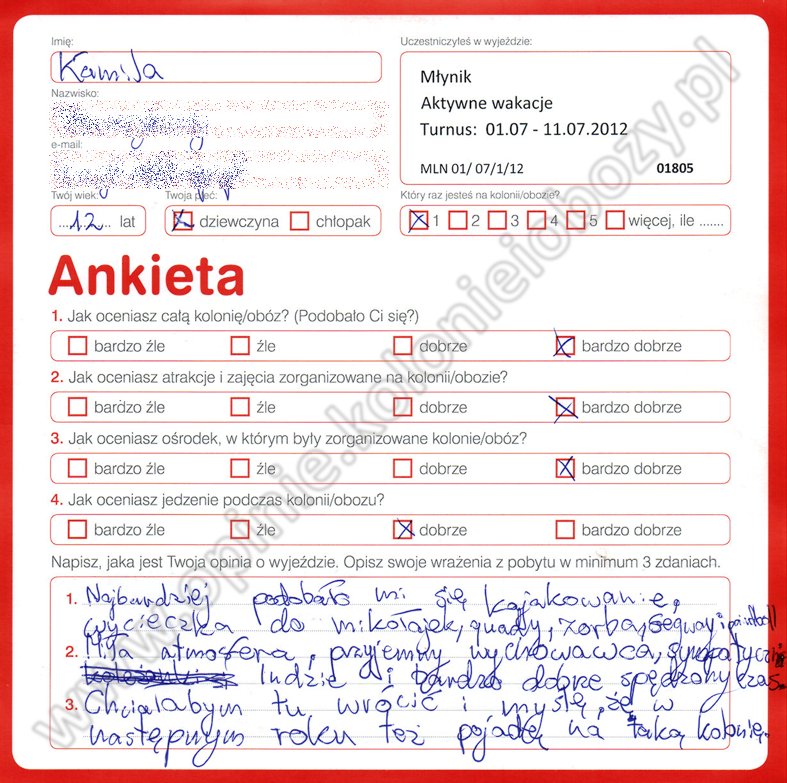 Imię:
Kamila
Uczestniczyłeś w wyjeździe:
Młynik
Aktywne wakacje
Turnus: 01.07 - 11.07.2012
MLN 01/ 07/1/12 01805
Nazwisko:
e-mail:
Twój wiek:
12 lat
Twoja płeć:
dziewczyna chłopak
Który raz jesteś na kolonii/obozie?
1 2 3 4 5 więcej, ile .......
Ankieta
1. Jak oceniasz całą kolonię/obóz? (Podobało Ci się?)
bardzo źle źle dobrze bardzo dobrze
2. Jak oceniasz atrakcje i zajęcia zorganizowane na kolonii/obozie?
bardzo źle źle dobrze bardzo dobrze
3. Jak oceniasz ośrodek, w którym były zorganizowane kolonie/obóz?
bardzo źle źle dobrze bardzo dobrze
4. Jak oceniasz jedzenie podczas kolonii/obozu?
bardzo źle źle dobrze bardzo dobrze
Napisz, jaka jest Twoja opinia o wyjeździe. Opisz swoje wrażenia z pobytu w minimum 3 zdaniach.
1. Najbardziej podobało mi się kajakowanie,
wycieczka do mikołajek, quady, zorba, segway i paintball
2. Miła atmosfera, przyjemny wychowawca, sympatyczni
ludzie i bardzo dobrze spędzony czas.
3. Chciałabym tu wrócić i myślę, że w
następnym roku też pojadę na taką kolonię.
www.opinie.kolonieiobozy.pl